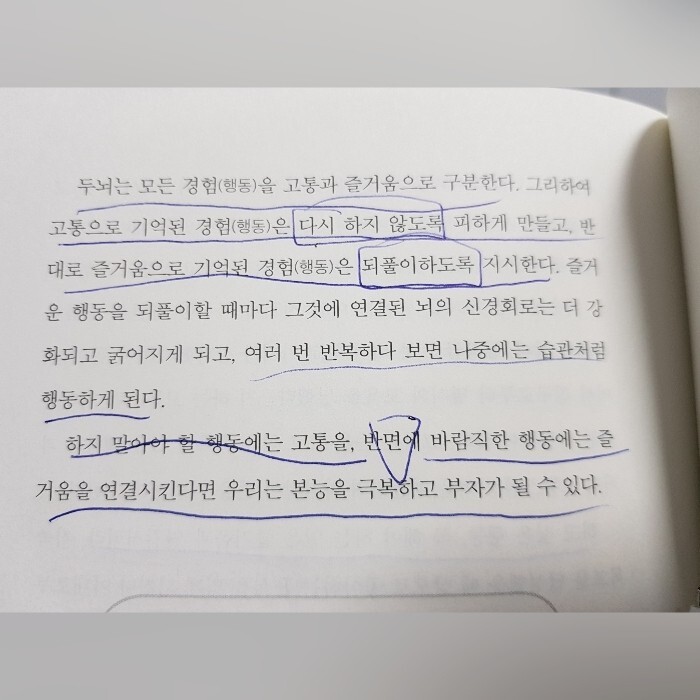 두뇌는 모든 경험(행동)을 고통과 즐거움으로 구분한다. 그리하여
고통으로 기억된 경험(행동)은 다시 하지 않도록 피하게 만들고, 반
대로 즐거움으로 기억된 경험(행동)은 되풀이하도록 지시한다. 즐거
운 행동을 되풀이할 때마다 그것에 연결된 뇌의 신경회로는 더 강
화되고 굵어지게 되고, 여러 번 반복하다 보면 나중에는 습관처럼
행동하게 된다.
하지 말아야 할 행동에는 고통을, 반면에 바람직한 행동에는 즐
거움을 연결시킨다면 우리는 본능을 극복하고 부자가 될 수 있다.